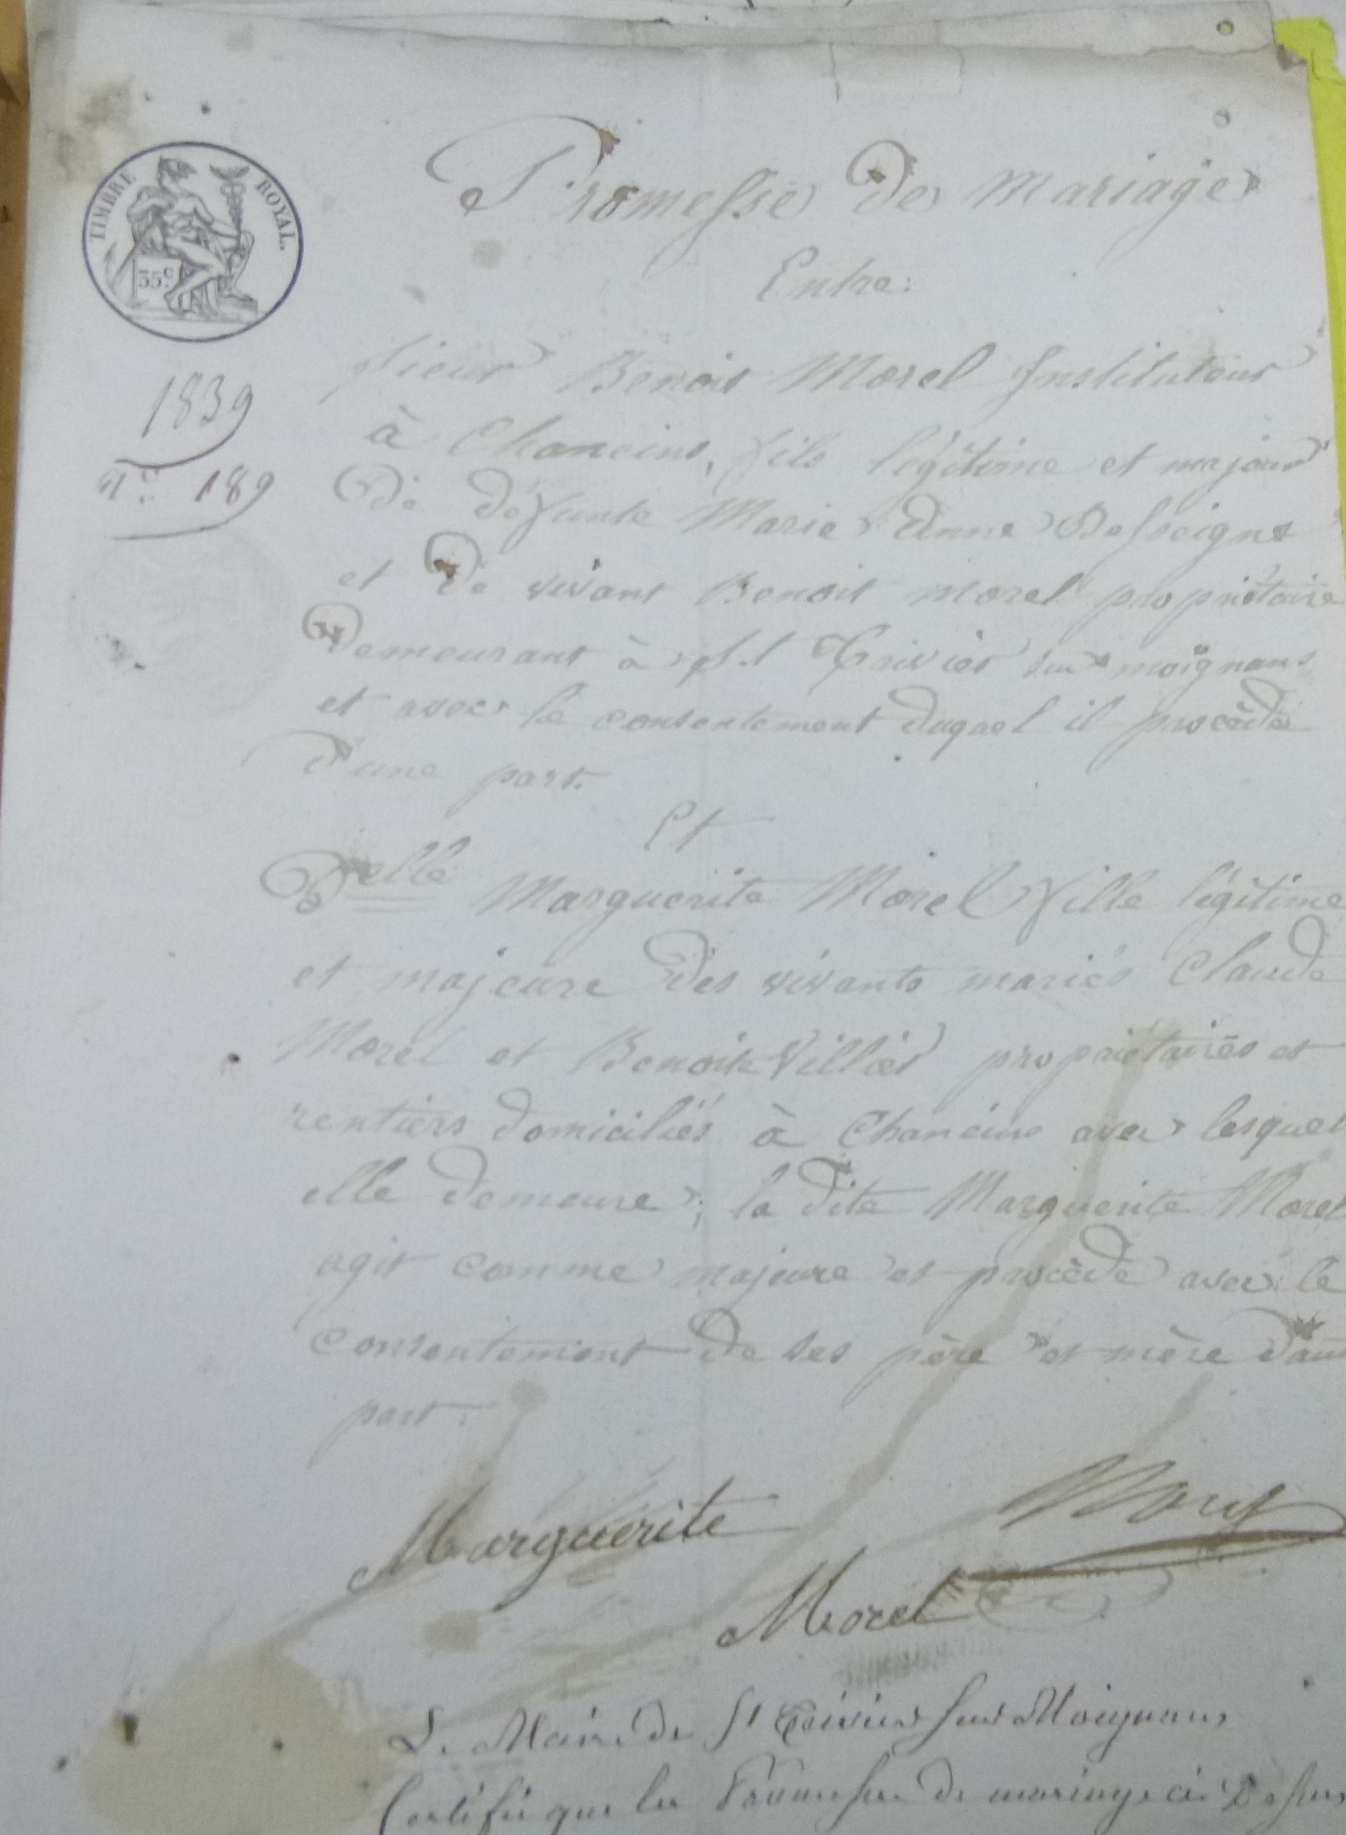 Promesse de mariage
Entre:
TIMBRE ROYAL.
35c.
1839
n.o 189
Sieur Benoit Morel Instituteur
à Chaneins, fils légitime et majeur
de défunte Marie Anne Desseigne
et de vivant Benoit morel propriétaire
Demeurant à St Trivier sur moignans
et avec le consentement duquel il procède
D'une part.
Et
Delle Marguerite Morel fille légitime
et majeure des vivants mariés Claude
Morel et Benoite Villier propriétaires et
rentiers domiciliés à Chaneins avec lesquel
elle demeure; la dite Marguerite Morel
agit comme majeure et procède avec le
consentement de ses père et mère d'au
part.
Marguerite
Morel
Le Maire de St Trivier sur Moignans
Certifie que les Promesses de mariage ci Dessus